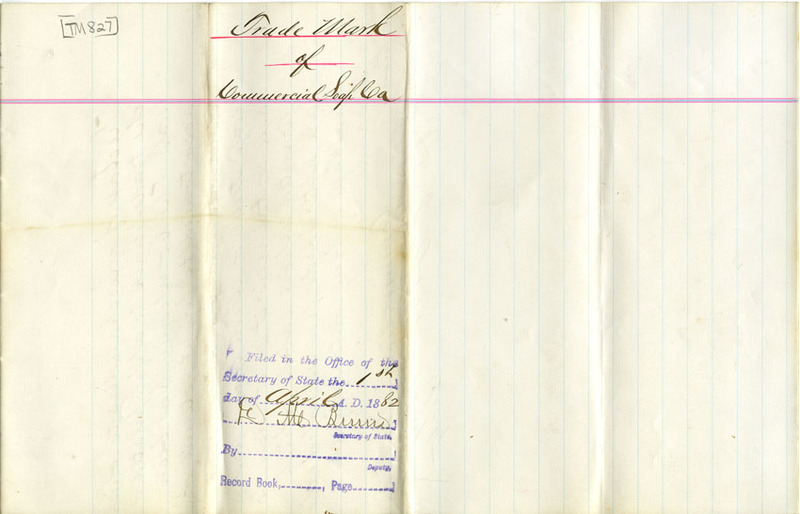 [TM 827]
Trade Mark
of
Commercial Soap Co
Filed in the Office of the
Secretary of State the 1st
day of April A. D. 1882
D M Burns
Secretary of State.
By
Deputy.
Record Book, , Page